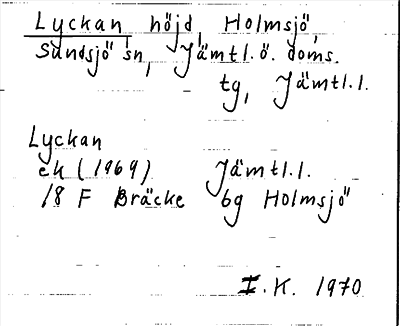 Lyckan höjd, Holmsjö,
Sundsjö sn, Jämtl.ö. doms.
tg, Jämtl.l.
Lyckan
ek (1969) Jämtl.l.
18 F Bräcke bg Holmsjö
I.K. 1970